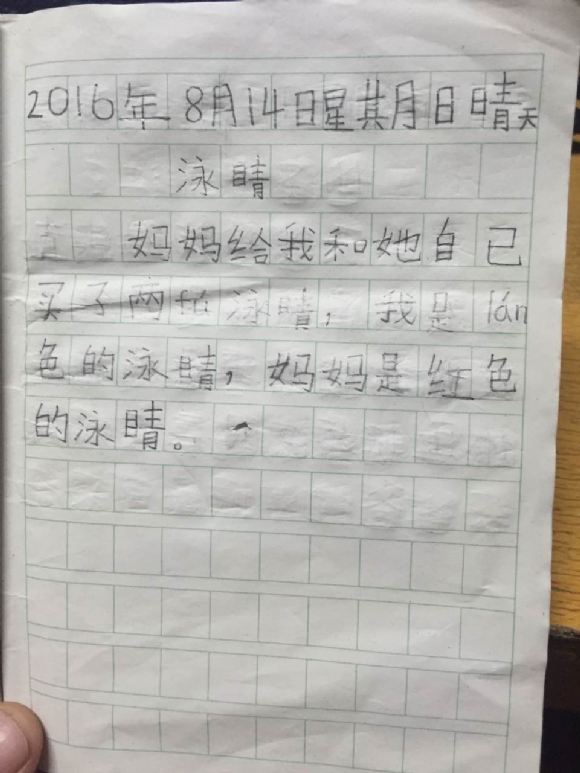 2016年 8月14日星期日晴天
泳睛
妈妈给我和她自己
买了两 泳睛，我是lán
色的泳睛，妈妈是红色
的泳睛。